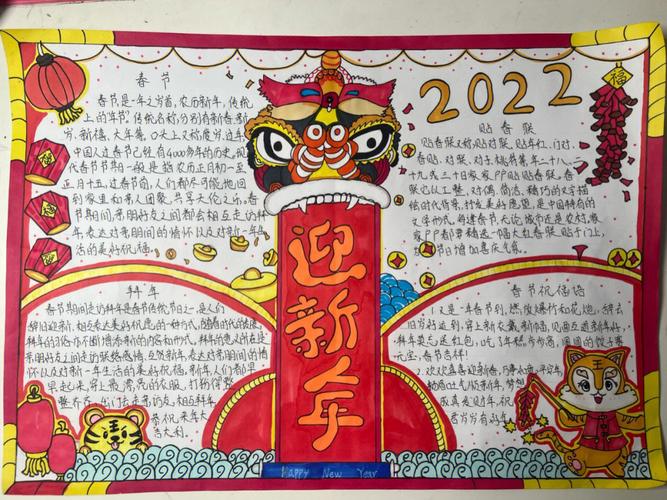 春节
春节是一年之岁首,农历新年,传统
上的年节。传统名称,分别有新春、新
岁、新禧、大年等,口头上又称度岁、过年。
中国人过春节已经有4000多年的历史。现
代春节节期一般是指农历正月初一至
正月十五。过春节前,人们都尽可能地回
到家里和亲人团聚,共享天伦之乐。春
节期间亲朋好友之间都会相互走访拜
年,表达对亲朋间的情怀以及对新一年生
活的美好祝福。
拜年
春节期间走访拜年是春节传统节日之一,是人们
辞旧迎新、相互表达美好祝愿的一种方式。随着时代的发展,
拜年的习俗亦不断增添新的内容和形式。拜年的意义所在是
亲朋好友之间走访联络感情、互贺新年,表达对亲朋间的情
怀以及对新一年生活的美好祝福。新年,人们都早
早起来,穿上最漂亮的衣服,打扮得整
整齐齐,出门去走亲访友,相互拜年
恭祝来年大
吉大利。
迎新年
Happy New Year
2022
福
贴春联
贴春联又称贴对联、贴年红、门对、
春贴、对联、对子、桃符等,年二十八、二
十九或三十日家家户户贴贴春联。春
联它以工整、对偶、简洁、精巧的文字描
绘时代背景,抒发美好愿望,是中国特有的
文学形式。每逢春节,无论城市还是农村,家
家户户都要精选一幅大红春联贴于门上,
节日增加喜庆气氛。
春节祝福语
1. 又是一年春节到,燃放爆竹和花炮,辞去
旧岁好运到,穿上新衣戴新帽,见面互道新年好,
拜年莫忘送红包,吃了年糕步步高,团团的饺子赛
元宝,春节吉祥!
2. 欢欢喜喜迎新春,
王
王